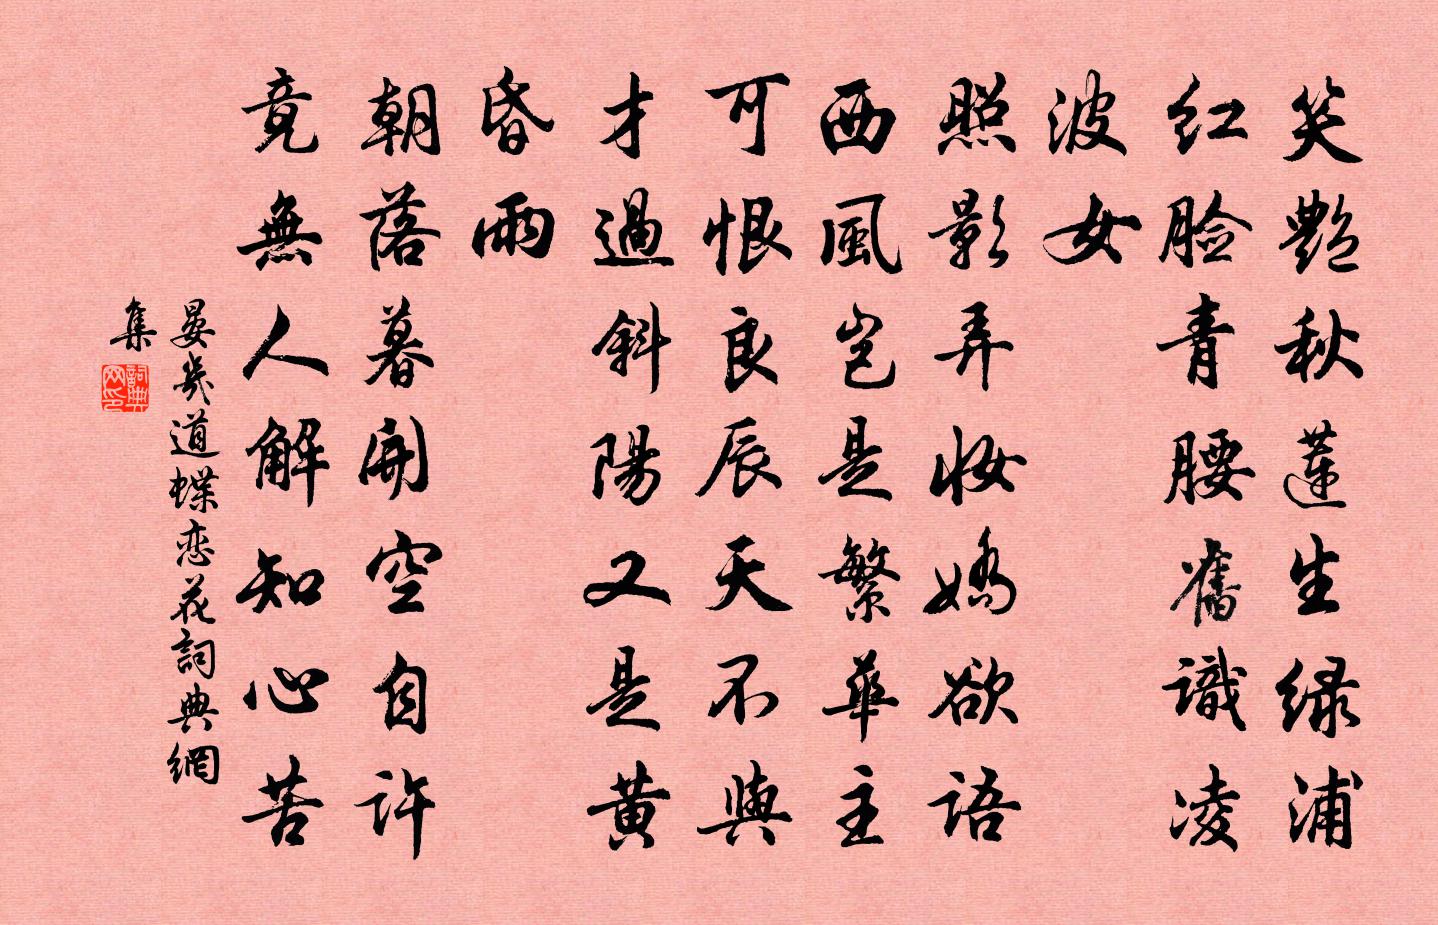 笑艷秋蓮生绿浦
红脸青腰舊識凌
波女
照影弄妆嬌欲語
西風岂是繁華主
可恨良辰天不與
才過斜陽又是黄
昏雨
朝落暮開空自許
竟無人解知心苦
晏幾道蝶恋花詞典網
集
詞典
网印